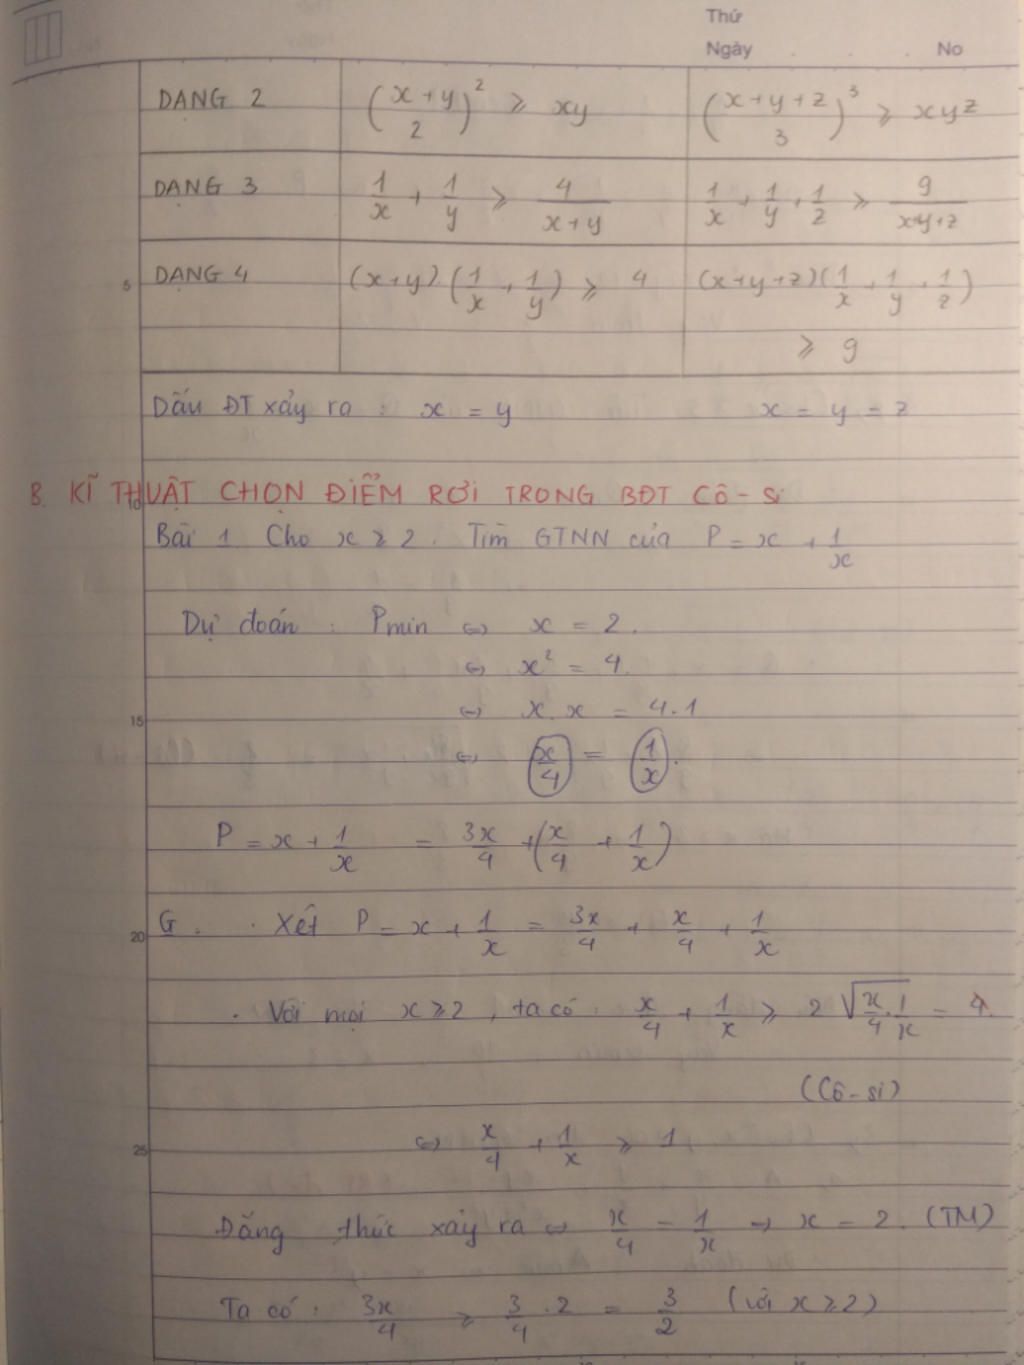 Thứ
Ngày . . . No
DẠNG 2 ((x+y)/2)² ≥ xy ((x+y+z)/3)³ ≥ xyz
DẠNG 3 1/x + 1/y ≥ 4/(x+y) 1/x + 1/y + 1/z ≥ 9/(x+y+z)
5 DẠNG 4 (x+y).(1/x + 1/y) ≥ 4 (x+y+z)(1/x + 1/y + 1/z)
≥ 9
Dấu ĐT xảy ra : x = y x = y = z
10 B. KĨ THUẬT CHỌN ĐIỂM RƠI TRONG BĐT CÔ-Si
Bài 1 Cho x ≥ 2. Tìm GTNN của P = x + 1/x
Dự đoán : Pmin ⇔ x = 2.
⇔ x² = 4.
15 ⇔ x.x = 4.1
⇔ x/4 = 1/x.
P = x + 1/x = 3x/4 + (x/4 + 1/x)
20 G. . Xét P = x + 1/x = 3x/4 + x/4 + 1/x
. Với mọi x ≥ 2, ta có : x/4 + 1/x ≥ 2√(x/4 . 1/x) = 1.
(Cô-si)
25 ⇔ x/4 + 1/x ≥ 1,
Đẳng thức xảy ra ⇔ x/4 = 1/x → x = 2. (TM)
Ta có : 3x/4 ≥ 3/4 . 2 = 3/2 (với x ≥ 2)